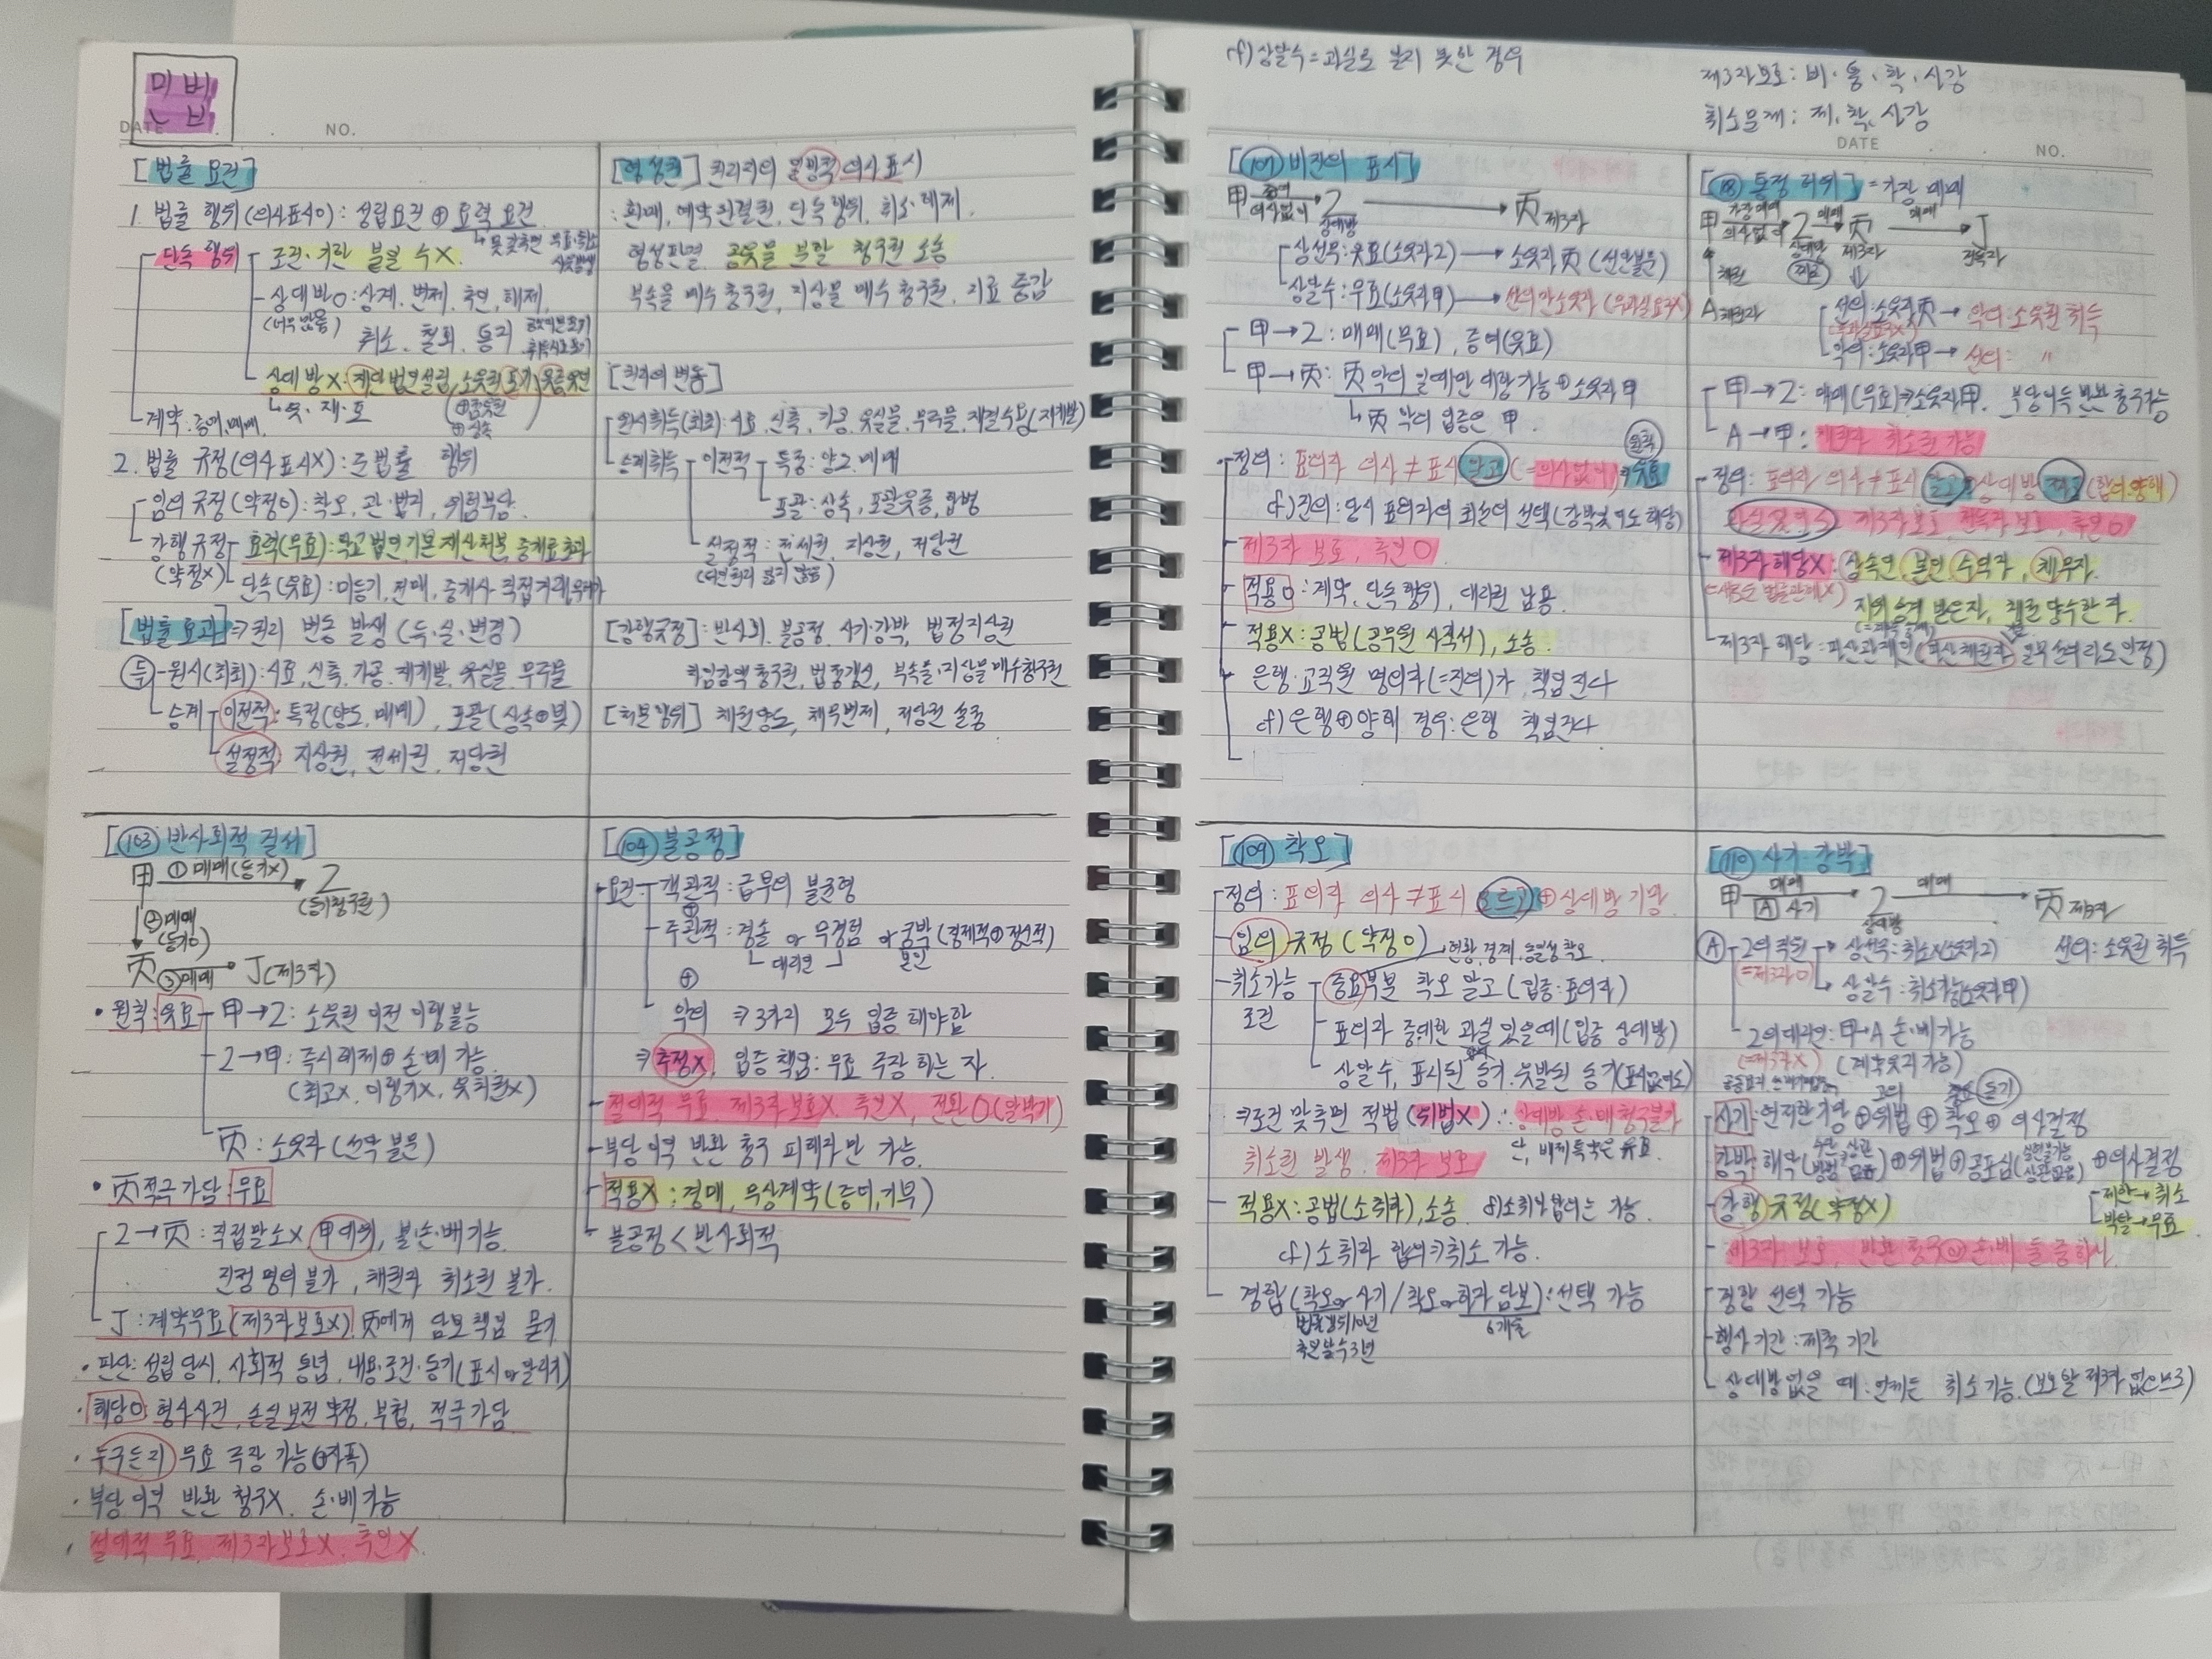 민법
DATE . . NO.
[법률 요건]
1. 법률 행위(의사표시O): 성립요건 ⊕ 효력 요건
↳ 못갖추면 무효·취소
단독 행위
조건·기한 붙일 수X
상대방O: 상계, 변제, 추인, 해제,
(너무 많음) 취소, 철회, 동의
상대방X: 재단법인설립, 소유권포기, 유증유언
↳ 유·재·포
계약: 증여, 매매
2. 법률 규정(의사표시X): 준법률 행위
임의 규정(약정O): 착오, 과·법지, 위험부담
강행규정 (약정X)
효력(무효): 학교법인 기본재산처분, 중개료초과
단속(유효): 미등기, 전매, 중개사 직접거래
[법률효과] ⇒ 권리 변동 발생 (득·실·변경)
득 - 원시(최초): 시효, 신축, 가공, 재개발, 유실물, 무주물
승계 - 이전적: 특정(양도, 매매), 포괄(상속⊕빚)
설정적: 지상권, 전세권, 저당권
[형성권] 권리자의 일방적 의사표시
: 환매, 예약완결권, 단독행위, 취소·해제,
형성판결 공유물 분할 청구권 소송
부속물 매수청구권, 지상물 매수청구권, 지료 증감
[권리의 변동]
원시취득(최초): 시효, 신축, 가공, 유실물, 무주물, 재결수용(재개발)
승계취득 - 이전적 - 특정: 양도, 매매
포괄: 상속, 포괄유증, 합병
설정적: 전세권, 지상권, 저당권
[강행규정]: 반사회, 불공정, 사기·강박, 법정지상권
차임감액청구권, 법정갱신, 부속물·지상물매수청구권
[처분행위] 채권양도, 채무면제, 저당권 설정
[103 반사회적 질서]
甲 ①매매(등기X) → 乙 (등기청구권)
②매매 (등기O)
丙 ③매매 → 丁(제3자)
• 원칙: 유효 - 甲→乙: 소유권 이전 이행불능
乙→甲: 즉시해제⊕손·배 가능
(최고X, 이행기X, 유치권X)
丙: 소유자(선악불문)
• 丙적극가담: 무효
乙→丙: 직접말소X, 甲대위, 불·손·배가능
진정명의불가, 채권자 취소권 불가.
丁: 계약무효(제3자보호X), 丙에게 담보책임 묻기
• 판단: 성립당시, 사회적 통념, 내용·조건·동기(표시or알려진)
• 해당O 형사사건, 손실보전 약정, 부첩, 적극가담
• 누구든지 무효 주장 가능
• 부당이익 반환 청구X, 손·배가능
• 절대적 무효, 제3자보호X, 추인X.
[104 불공정]
요건 - 객관적: 급부의 불균형
⊕
주관적: 경솔 or 무경험 or 궁박(경제적⊕정신적)
대리인 본인
⊕
악의 ⇒ 3가지 모두 입증 해야함
⇒ 추정X, 입증책임: 무효 주장 하는 자.
절대적 무효 제3자보호X, 추인X, 전환O(알박기)
부당이익 반환 청구 피해자만 가능.
적용X: 경매, 무상계약(증여, 기부)
불공정 < 반사회적
cf) 상알수 = 과실로 분리 못한 경우
제3자보호: 비·통·착·사강
취소문제: 제, 착, 사강
DATE NO.
[107 비진의 표시]
甲 증여 의사없이 → 乙 상대방 → 丙 제3자
상선무: 유효(소유자乙) → 소유자 丙 (선악불문)
상알수: 무효(소유자甲) → 선의만소유자 (무과실요구X)
甲→乙: 매매(무효), 증여(유효)
甲→丙: 丙 악의 일때만 대항가능 ⊕ 소유자 甲
↳ 丙 악의 입증은 甲.
원칙
• 정의: 표의자 의사≠표시 알고 (=의사없이) ⇒ 유효
cf) 진의: 당시 표의자의 최선의 선택(강박및의도해당)
제3자 보호, 추인O
적용O: 계약, 단독행위, 대리권 남용.
적용X: 공법(공무원 사직서), 소송.
은행·교직원 명의자(=진의)가 책임진다
cf) 은행⊕양해 경우: 은행 책임진다
[108 통정 허위] = 가장 매매
甲 가장매매 의사없이 → 乙 상대방 매매 → 丙 제3자 매매 → 丁 전득자
채권
A채권자
선의: 소유자丙 → 악의: 소유권 취득
악의: 소유자甲 → 선의: 〃
甲→乙: 매매(무효) ⇒ 소유자甲, 부당이득 반환청구가능
A→甲: 채권자 취소권 가능
정의: 표의자 의사≠표시 알고 ⊕ 상대방 짜고 (합의·양해)
제3자보호, 전득자 보호, 추인O
제3자해당X: 상속인, 본인, 수익자, 채무자.
지위승계 받은자, 채권양수한 자.
제3자 해당: 파산관재인(파산채권자 모두선의라도 인정)
[109 착오]
정의: 표의자 의사≠표시 모르고 ⊕ 상대방 기망
임의 규정 (약정O) 현황, 경계, 동일성 착오
취소가능 조건
중요부분 착오 알고 (입증: 표의자)
표의자 중대한 과실 있을때 (입증 상대방)
상알수, 표시된 동기, 유발된 동기(표시없어도)
⇒ 조건 맞추면 적법(위법X) ∴ 상대방 손·배청구불가
취소권 발생, 제3자 보호 단, 배제특약은 유효.
적용X: 공법(소취하), 소송. cf) 소취하합의는 가능.
cf) 소취하 합의 ⇒ 취소 가능.
경합(착오or사기 / 착오or하자 담보): 선택 가능
법률행위10년 6개월
추인할수3년
[110 사기·강박]
甲 매매 → 乙 상대방 매매 → 丙 제3자
A 사기
A - 乙의 직원 (=제3자O) → 상선무: 취소X(소유자乙) 선의: 소유권 취득
→ 상알수: 취소가능(소유자甲)
乙의대리인: 甲→A 손·배가능
(=제3자X) (계약유지가능)
사기: 현저한기망 ⊕ 위법 ⊕ 착오 ⊕ 의사결정
강박: 해악 ⊕ 위법 ⊕ 공포심 ⊕ 의사결정
강행 규정(약정X)
제한 → 취소
박탈 → 무효
제3자 보호, 반환 청구 or 손·배 둘 중 하나.
경합 선택 가능
행사 기간: 제척 기간
상대방없을 때: 언제든 취소가능. (보호할 제3자 없으므로)